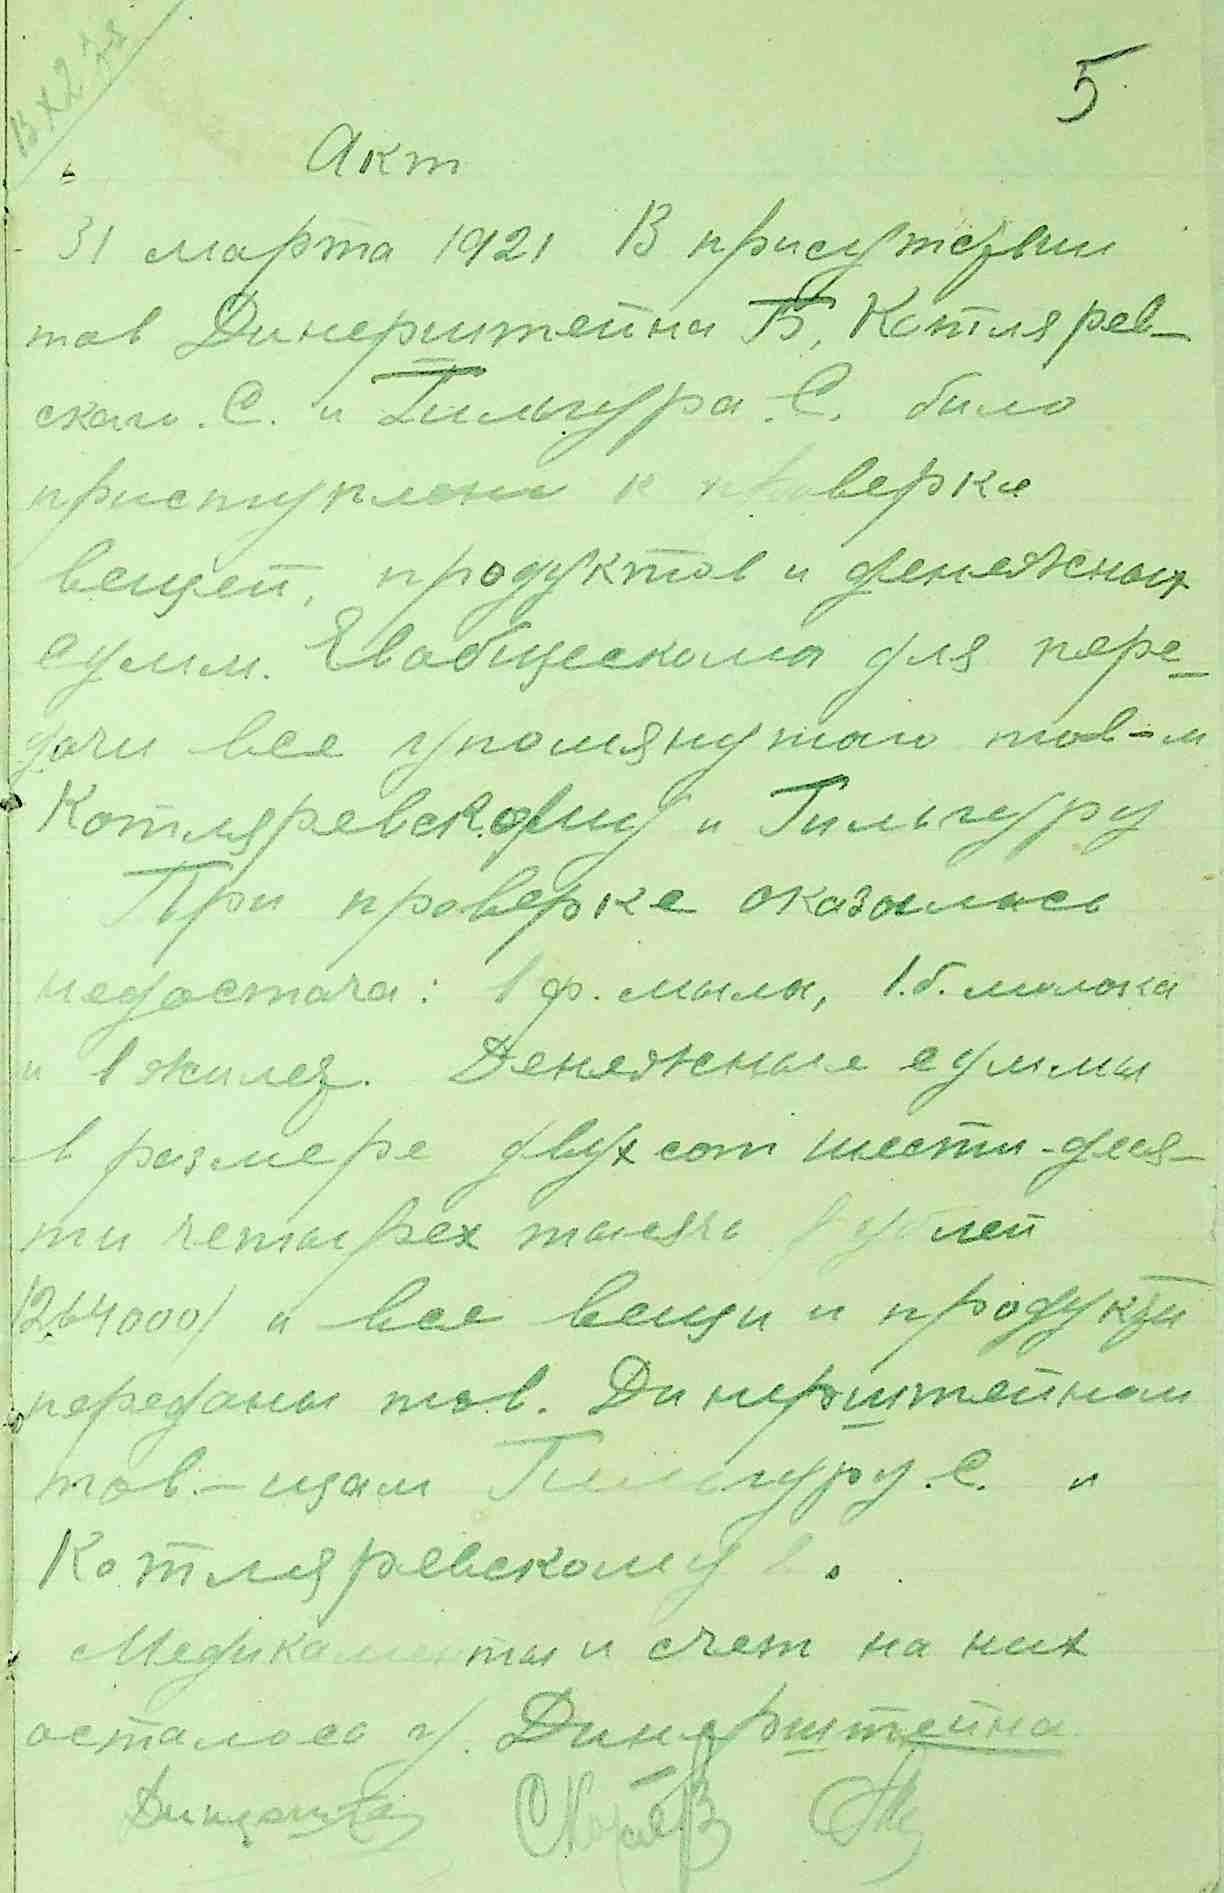 5
Акт
31 марта 1921 В присутствии
тов Динерштейна Б, Котлярев-
ского. С. и Гильгура. С. было
приступлено к проверке
вещей, продуктов и денежных
сумм. Евобщескома для пере-
дачи все упомянутого тов-м
Котляревскому и Гильгуру
При проверке оказалась
недостача: 1 ф. мыла, 1.б. молока
и 1 жилет. Денежные суммы
в размере двухсот шести-деся-
ти четырех тысяч рублей
/264000/ и все вещи и продукты
переданы тов. Динерштейном
тов.-щам Гильгуру. С. и
Котляревскому
Медикаменты и счет на них
осталось у. Динерштейна